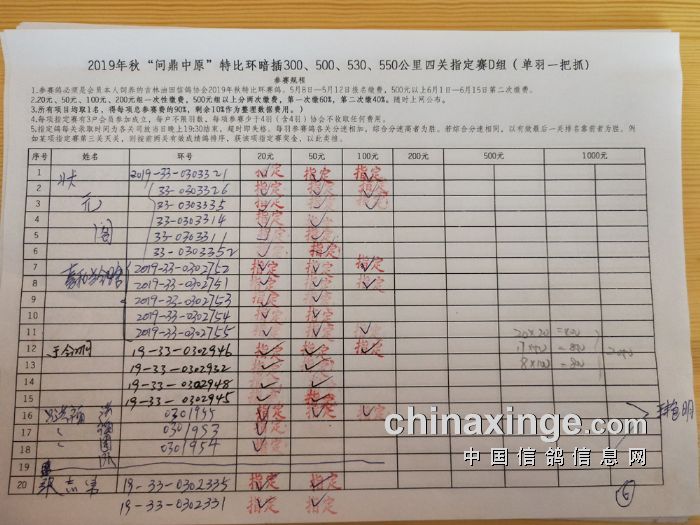 2019年秋“问鼎中原”特比环暗插300、500、530、550公里四关指定赛D组（单羽一把抓）
参赛规程
1.参赛鸽必须是会员本人饲养的吉林油田信鸽协会2019年秋特比环赛鸽，5月8日—5月12日报名缴费，500元以上6月1日—6月15日第二次缴费。
2.20元、50元、100元、200元组一次性缴费，500元组以上分两次缴费，第一次缴60%，第二次缴40%。随时上网公布。
3.所有项目均取1名，得每项总参赛费的90%，剩余10%作为整理数据费用。）
4.每项指定赛有3户会员参加成立，每户不限羽数，每项赛参少于4羽（含4羽）协会不收取任何费用。
5.指定鸽每关录取时间为各关司放当日晚上19:30结束，超时即失格。每羽参赛鸽各关分速相加，综合分速高者为胜。若综合分速相同，以有效最后一关排名靠前者为胜。例
如某项指定赛第三关天关，则按前两关有效成绩鸽排序，获该项指定赛奖金，以此类推。
序号 姓名 环号 20元 50元 100元 200 500元 1000元
1 状 2019-33-0303321 指定 指定 指定
2 33-0303326 指定 指定 指定
3 元 33-0303335 指定 指定 指定
4 33-0303314 指定 指定
5 阁 33-0303311 指定 指定
6 33-0303352 指定 指定
7 2019-33-0302752 指定 指定 指定
8 2019-33-0302751 指定 指定 指定
9 2019-33-0302753 指定 指定
10 2019-33-0302754 指定 指定
11 2019-33-0302755 指定 指定 指定
12 19-33-0302946 指定 指定 指定
13 19-33-0302932 指定 指定
14 19-33-0302948 指定 指定
15 19-33-0302945 指定 指定
16 0301955 指定 指定 指定
17 0301953 指定
18 0301954 指定
19
20 19-33-0302335 指定 指定
19-33-0302331 指定 指定
chinaxinge.com
中国信鸽信息网
6